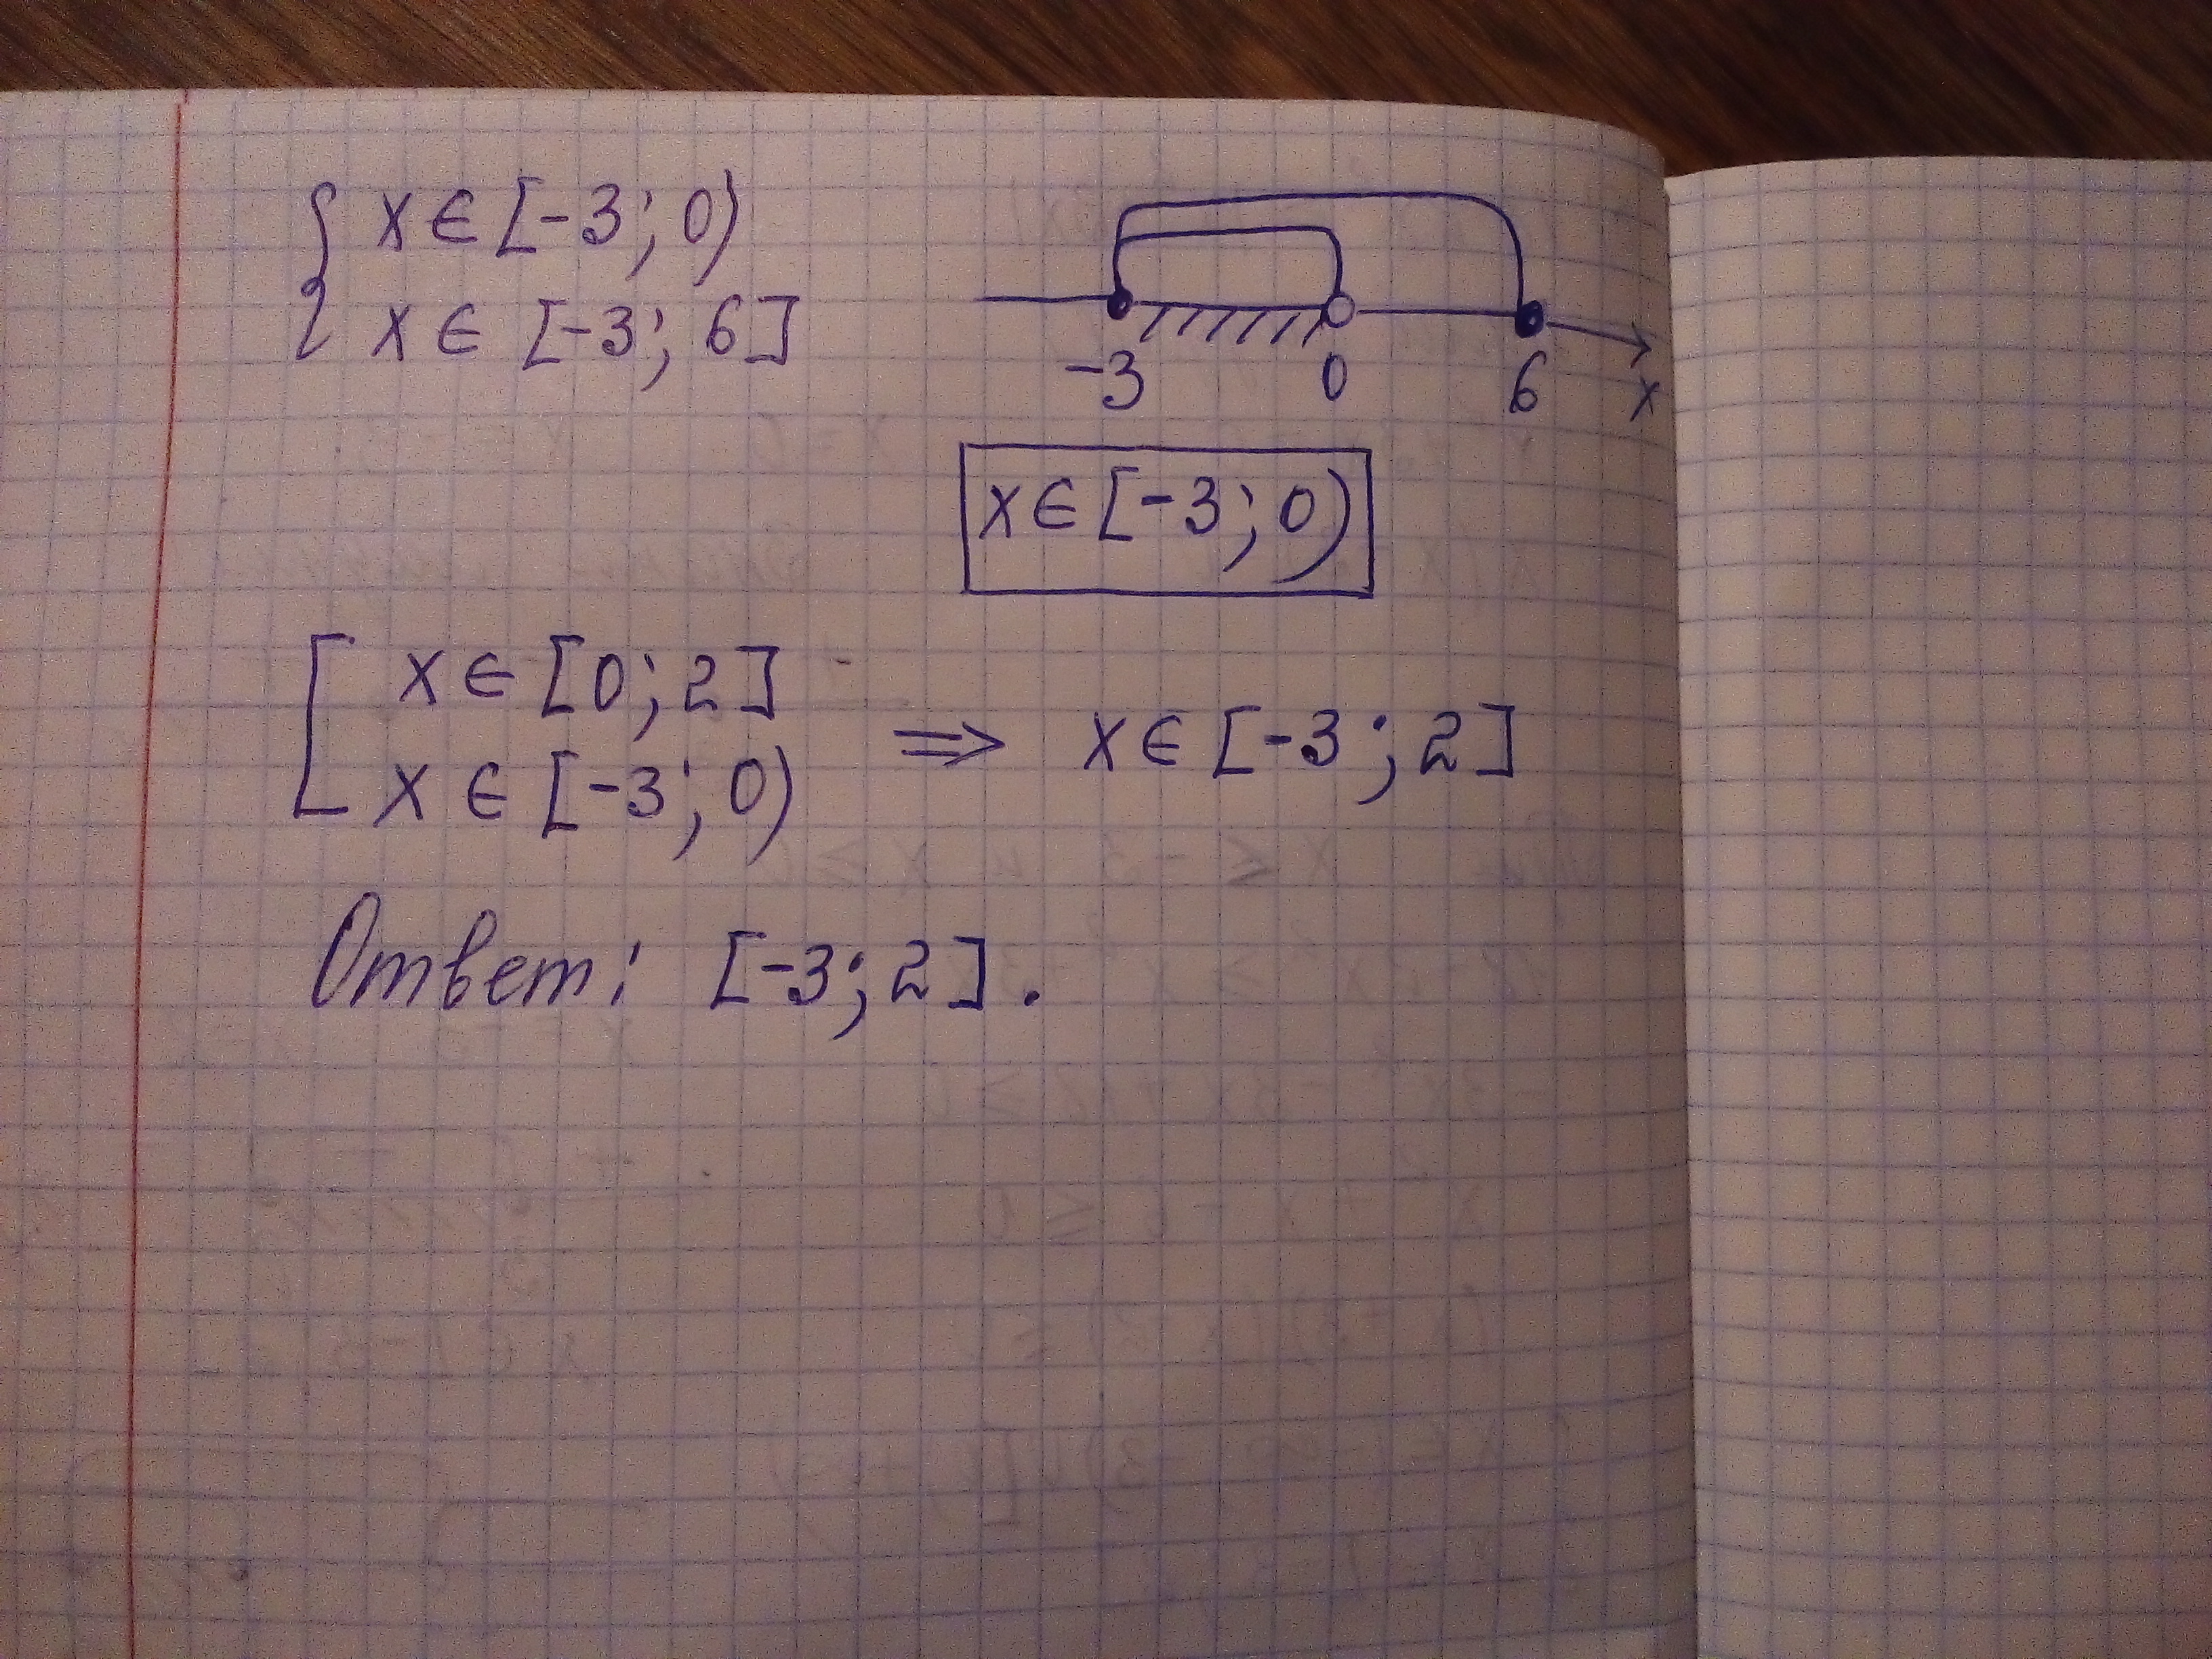 { x ∈ [-3; 0)
x ∈ [-3; 6]
-3 0 6 x
x ∈ [-3; 0)
[ x ∈ [0; 2]
x ∈ [-3; 0)
⇒ x ∈ [-3; 2]
Ответ: [-3; 2].